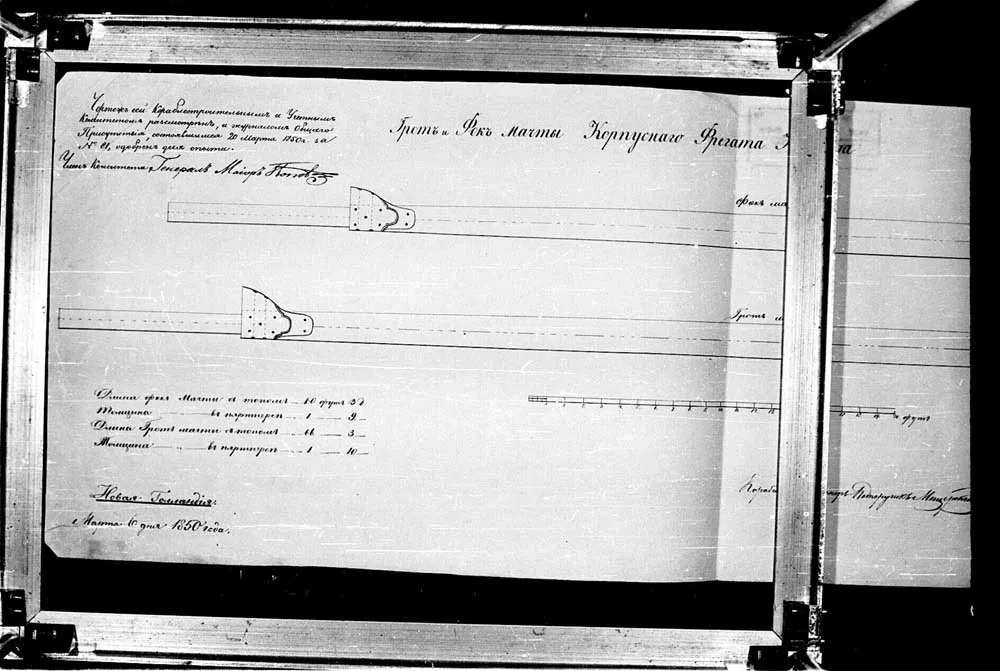 Чертежъ сей Кораблестроительнымъ и Учетнымъ
Комитетомъ разсмотрѣнъ, и журналомъ Общаго
Присутствія состоявшимся 20 Марта 1850 г. за
№ 81, одобренъ для опыта.
Членъ Комитета, Генералъ Маіоръ Поповъ
Гротъ и Фокъ мачты Корпуснаго Фрегата
фокъ ма
Гротъ м
Длина фокъ мачты съ топомъ 60 футъ 3 д
Толщина въ пяртнерсѣ 1 9
Длина Гротъ мачты съ топомъ 66 3
Толщина въ пяртнерсѣ 1 10
футъ
Новая Голландія.
Марта 6 дня 1850 года.
Кораб